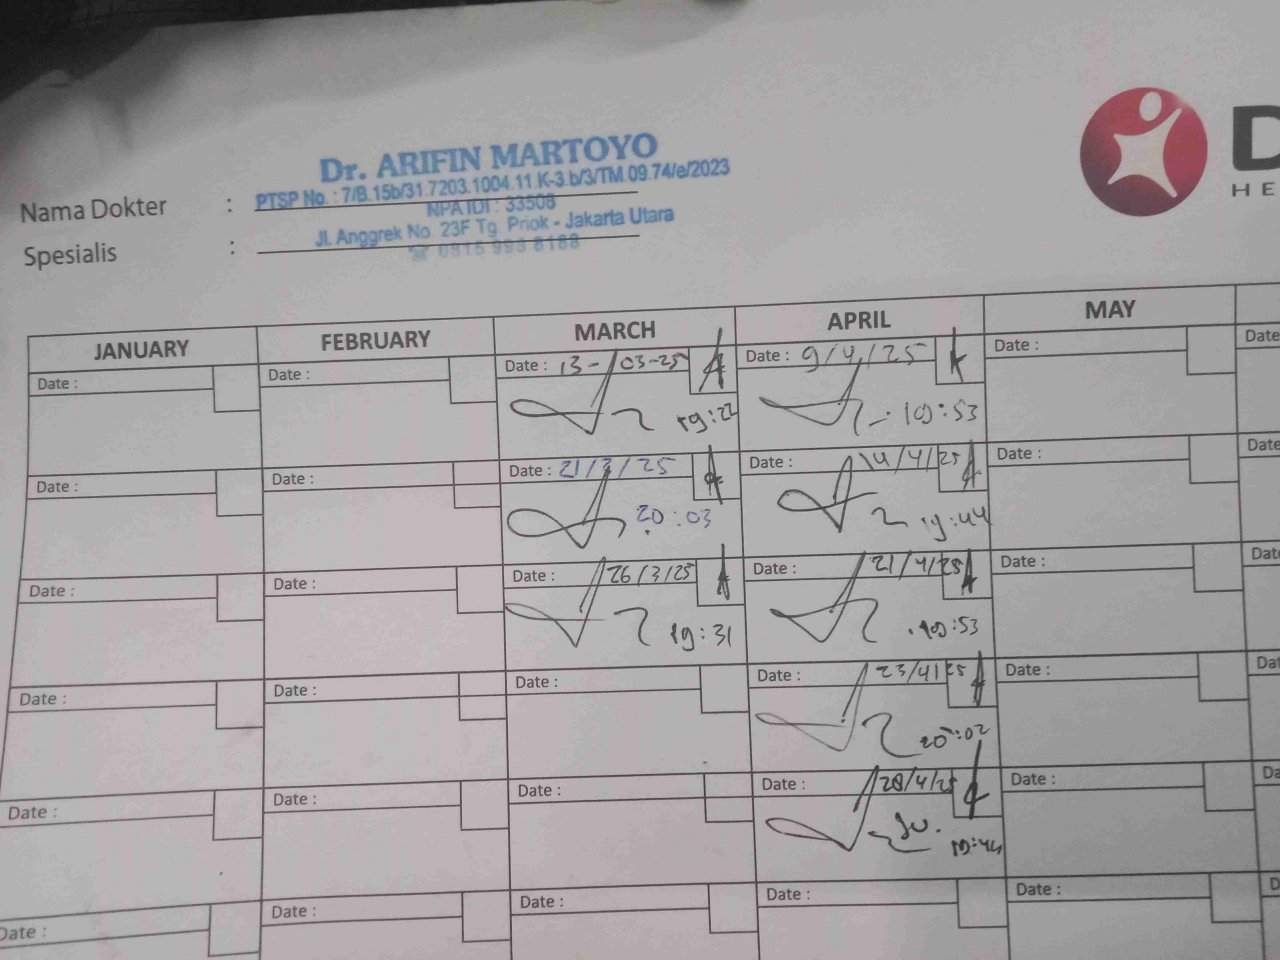 Dr. ARIFIN MARTOYO
PTSP No. : 7/B.15b/31.7203.1004.11.K-3.b/3/TM.09.74/e/2023
NPA IDI : 33508
Jl. Anggrek No. 23F Tg. Priok - Jakarta Utara
Nama Dokter :
Spesialis :
D
HE
JANUARY FEBRUARY MARCH APRIL MAY
Date : Date : Date : 13-03-25 Date : 9/4/25 Date : Date
19:22 19:53
Date : Date : Date : 21/3/25 Date : 14/4/25 Date : Date
20:03 19:44
Date : Date : Date : 26/3/25 Date : 21/4/25 Date : Dat
19:31 19:53
Date : Date : Date : Date : 23/4/25 Date : Dat
20:02
Date : Date : Date : Date : 28/4/25 Date : Da
19:44
Date : Date : Date : Date : Date : D